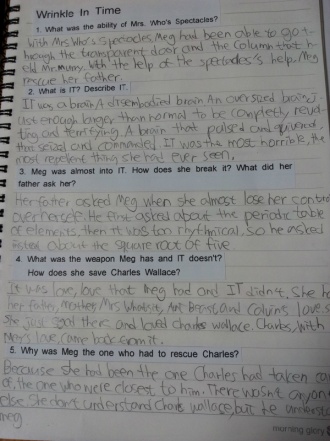 Wrinkle In Time
1. What was the ability of Mrs. Who's Spectacles?
With Mrs Who's spectacles Meg had been able to go t-
hrough the transparent door and the column that h-
eld Mr. Murry. With the help of the spectacles's help, Meg
rescue her father.
2. What is IT? Describe IT.
IT was a brain. A disembodied brain. An oversized brain, j-
ust enough larger than normal to be completely revol
ting and terrifying. A brain that pulsed and quivered,
that seized and commanded. IT was the most horrible, the
most repellent thing she had ever seen.
3. Meg was almost into IT. How does she break it? What did her
father ask her?
Her father asked Meg when she almost lose her contro
over herself. He first asked about the periodic table
of elements, then it was too rhythmical. So he asked
about the square root of five
4. What was the weapon Meg has and IT doesn't?
How does she save Charles Wallace?
It was love, love that Meg had and IT didn't. She h
her father, mother, Mrs Whatsit, Aunt Beast, and Calvin's love s
She just stood there and loved charles wallace. Charles, with
Meg's love, came back from it.
5. Why was Meg the one who had to rescue Charles?
Because she had been the one Charles had taken car
of, the one who were closest to him. There wasn't anyon
else. She don't understand Charles wallace, but he understa
meg
morning glory